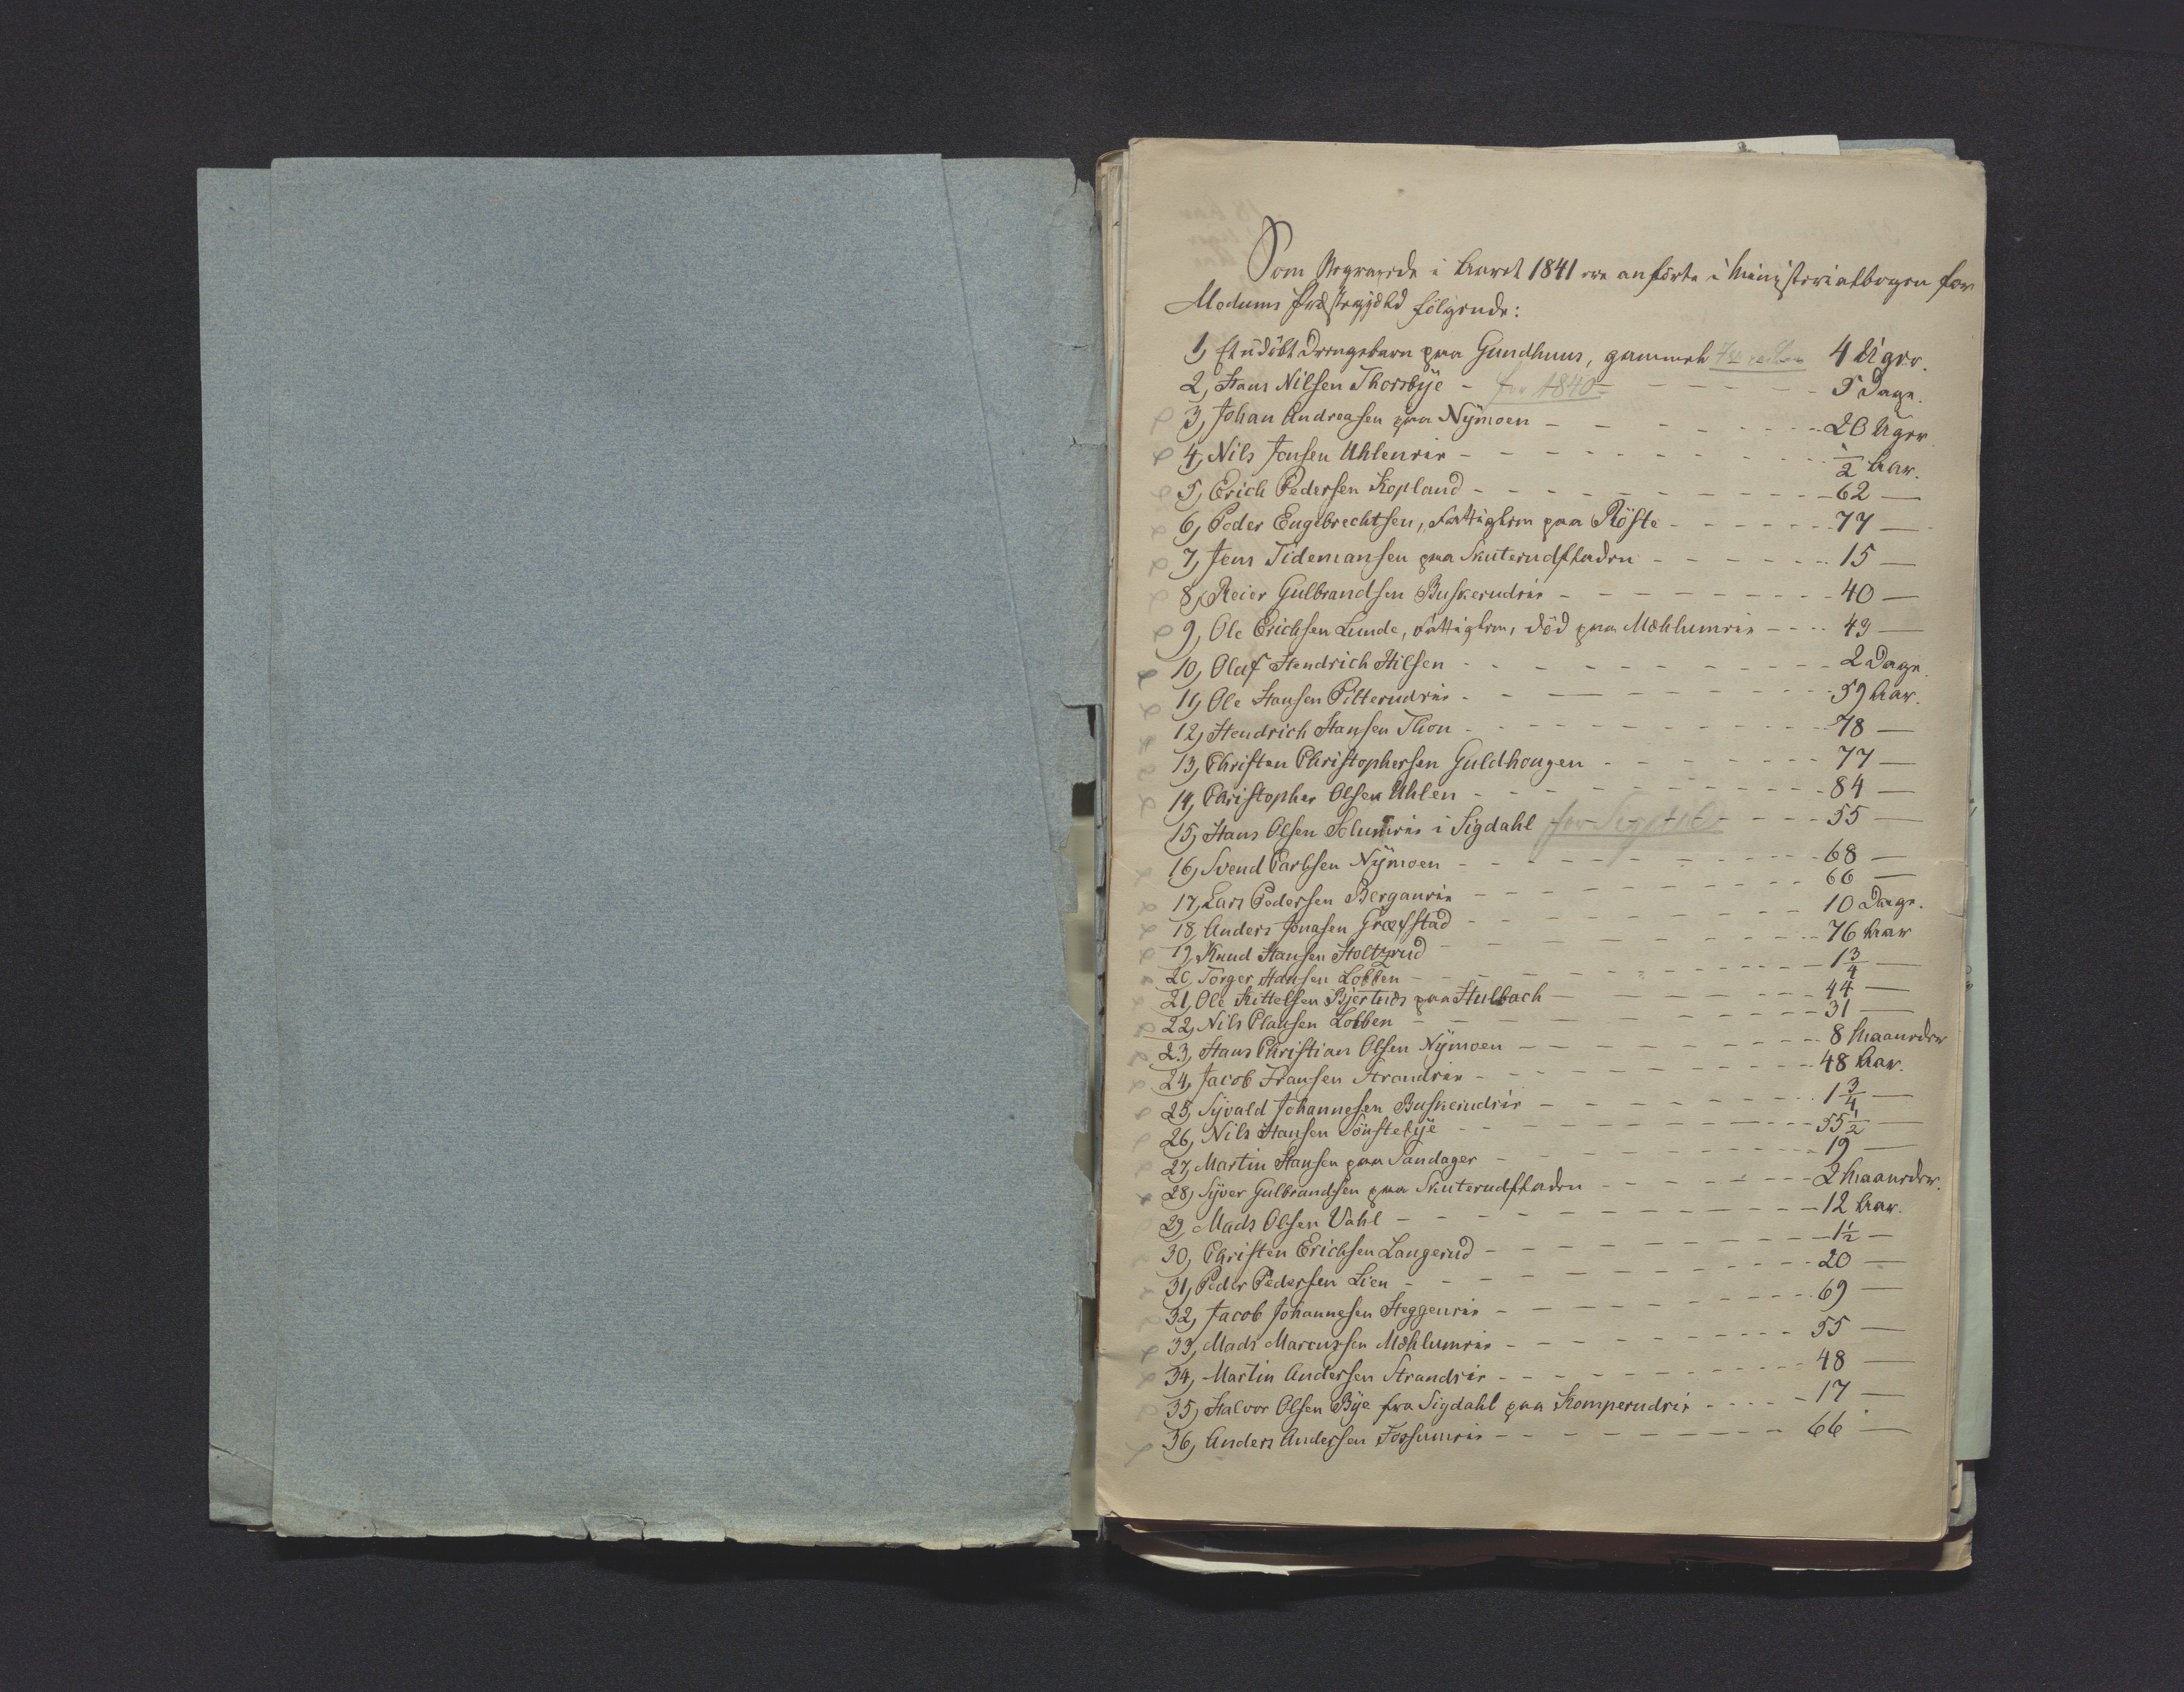 Som Begravede i Aaret 1841 ere anførte i Ministerialbogen for
Modums Præstegjeld følgende:
1, Et udöbt Drengebarn paa Gundhuus, gammelt 4 Uger.
2, Hans Nilsen Thorsbÿe - for 1840 - 5 Dage.
3, Johan Andreasen paa Nÿmoen - 20 Uger.
4, Nils Jensen Uhleneie - 1/2 Aar.
5, Erich Pedersen Kopland - 62 —
6, Peder Engebrechtsen, Fattiglem paa Röste - 77 —
7, Jens Tidemansen paa Skuterudfladen - 15 —
8, Reier Gulbrandsen Buskerudeie - 40 —
9, Ole Erichsen Lunde, Fattiglem, död paa Mæhlumeie - 49 —
10, Oluf Hendrich Nilsen - 2 Dage.
11, Ole Hansen Pitterudeie - 59 Aar.
12, Hendrich Hansen Thon - 78 —
13, Christen Christophersen Guldhougen - 77 —
14, Christopher Olsen Uhlen - 84 —
15, Hans Olsen Solumeie i Sigdahl for Sigdal - 55 —
16, Svend Carlsen Nÿmoen - 68 —
17, Lars Pedersen Berganeie - 66 —
18, Anders Jonasen Græfstad - 10 Dage.
19, Knud Hansen Holtzrud - 76 Aar
20, Torger Hansen Lobben - 1 3/4 —
21, Ole Kittelsen Bjertnæs paa Hulbach - 44 —
22, Nils Clausen Lobben - 31 —
23, Hans Christian Olsen Nÿmoen - 8 Maaneder
24, Jacob Fransen Strandeie - 48 Aar.
25, Sÿvald Johannesen Buskerudeie - 1 3/4 —
26, Nils Hansen Sönstebÿe - 55 1/2 —
27, Martin Hansen paa Sandager - 19 —
28, Sÿver Gulbrandsen paa Skuterudfladen - 2 Maaneder.
29, Mads Olsen Vahl - 12 Aar.
30, Christen Erichsen Langerud - 1 1/2 —
31, Peder Pedersen Lien - 20 —
32, Jacob Johannesen Heggeneie - 69 —
33, Mads Marcussen Mæhlumeie - 55 —
34, Martin Andersen Strandeie - 48 —
35, Halvor Olsen Bÿe fra Sigdahl paa Komperudeie - 17 —
36, Anders Andersen Fossumeie - 66 —